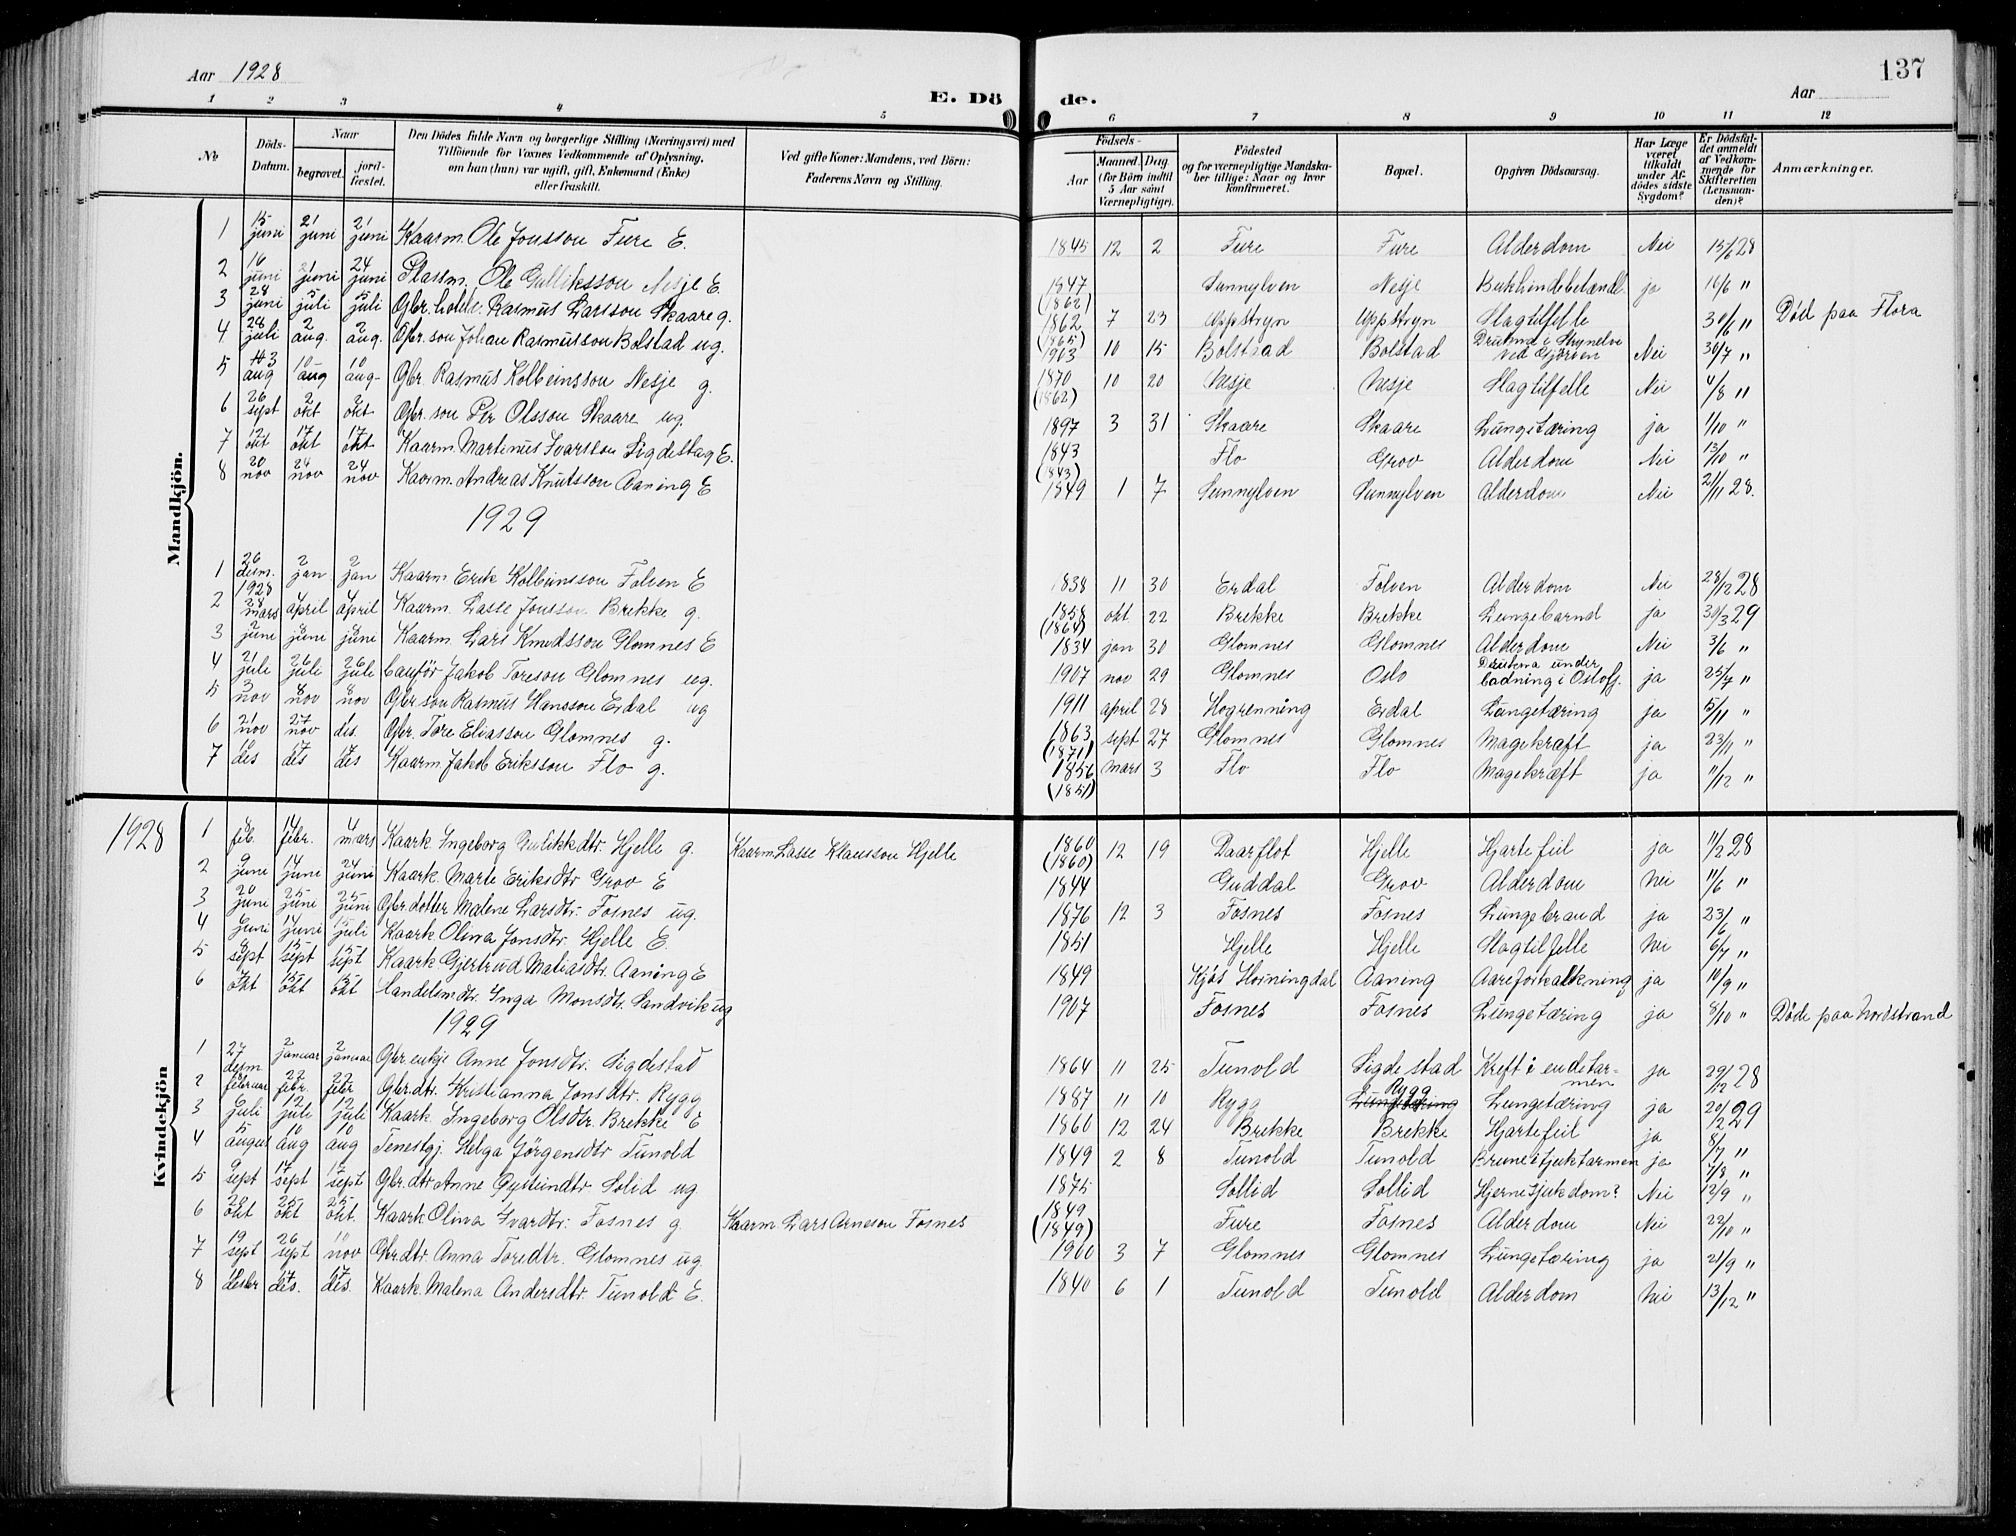 Aar 1928
137
E. Döde.
Aar
1 2 3 4 5 6 7 8 9 10 11 12
No
Döds-Datum.
Naar
begravet.
jord-fæstet.
Den Dödes fulde Navn og borgerlige Stilling (Næringsvei) med
Tilföiende for Voxnes Vedkommende af Oplysning,
om han (hun) var ugift, gift, Enkemand (Enke)
eller fraskilt.
Ved gifte Koner: Mandens, ved Börn:
Faderens Navn og Stilling.
Födsels-
Aar
Maaned. Dag.
(for Börn indtil
5 Aar samt
Værnepligtige).
Födested
og for værnepligtige Mandska-
ber tillige: Naar og hvor
konfirmeret.
Bopæl.
Opgiven Dödsaarsag.
Har Læge
været
tilkaldt
under Af-
dödes sidste
Sygdom?
Er Dödsfal-
det anmeldt
af Vedkom-
mende for
Skifteretten
(Lensman-
den)?
Anmærkninger.
Mandkjön.
1 15 juni 2 juni 2 juni Kaarm. Ole Jonsson Fure E. 1845 12 2 Fure Fure Alderdom Nei 15/6 28
2 16 juni 21 juni 24 juni Plassm. Ole Gulliksson Nesje E. 1847 (1862) Sunnylven Nesje Bukhindebetændl. ja 16/6 "
3 28 juni 5 juli 5 juli Gbr. Rasmus Larsson Skaare g. 1862 (1865) 7 23 Uppstryn Uppstryn Slagtilfelle 30/6 " Död paa Flora
4 28 juli 2 aug. 2 aug. Gbr. son Johan Rasmusson Bolstad ug. 1903 10 15 Bolstad Bolstad Drukna i Strynelva ved Gjörven Nei 30/7 "
5 3 aug 10 aug 10 aug Gbr. Rasmus Kolbeinsson Nesje g. 1870 (1862) 10 20 Nesje Nesje Slagtilfelle Nei 4/8 "
6 26 sept 2 okt 2 okt. Gbr. son Per Olsson Skaare ug. 1897 3 31 Skaare Skaare Lungetæring ja 1/10 "
7 12 okt 17 okt 17 okt Kaarm. Martinus Ivarsson Sigdestad E. 1843 (1843) Flo Grov Alderdom Nei 13/10 "
8 20 nov 24 nov 24 nov Kaarm. Andreas Knutsson Aaning E 1849 1 7 Sunnylven Sunnylven Alderdom Nei 21/11 28.
1929
1 26 desm. 1928 2 jan 2 jan Kaarm Erik Kolbeinsson Folven E 1838 11 30 Erdal Folven Alderdom Nei 28/12 28
2 28 mars 4 april 4 april Kaarm. Lasse Jonsson Brekke g. 1858 (1864) okt. 22 Brekke Brekke Lungebrand ja 30/3 29
3 2 june 8 june 8 juni Kaarm Lars Knudsson Glomnes E 1834 jan 30 Glomnes Glomnes Alderdom Nei 3/6 "
4 21 juli 26 juli 26 juli Jakob Toreson Glomnes ug. 1907 nov 29 Glomnes Oslo Drukna under badning i Oslofj. ja 25/7 "
5 3 nov 8 nov 8 nov Gbr son Rasmus Hansson Erdal ug 1911 april 28 Hogrenning Erdal Lungetæring ja 5/11 "
6 21 nov 27 nov des. Gbr. Tore Eliasson Glomnes g. 1863 (1871) sept 27 Glomnes Glomnes Magekræft ja 23/11 "
7 10 des 17 des 17 des Kaarm Jakob Eriksson Flo g. 1856 (1851) mars 3 Flo Flo Magekræft ja 11/12 "
1928
Kvindekjön
1 8 feb. 14 febr. 4 mars Kaark Ingeborg Gulikkdtr Hjelle g. Kaarm. Lasse Klausson Hjelle 1860 (1860) 12 19 Raarflot Hjelle Hjartefeil ja 11/2 28
2 9 juni 14 juni 24 juni Kaark. Marte Eriksdtr Grov E 1844 Guddal Grov Alderdom Nei 11/6 "
3 20 juni 25 juni 25 juni Gbr. dotter Malene Larsdtr. Fosnes ug. 1876 12 3 Fosnes Fosnes Lungebrand ja 23/6 "
4 9 juni 14 juni 15 juli Kaark. Olina Jonsdtr. Hjelle E. 1851 Hjelle Hjelle Slagtilfelle Nei 6/7 "
5 8 sept 15 sept 15 sept Kaark. Gjertrud Matiasdtr. Aaning E 1849 Kjös Horningdal Aaning Aareforkalkning ja 10/9 "
6 7 okt 15 okt 15 okt Landelsmdtr. Inga Monsdtr. Sandvik ug 1907 Fosnes Fosnes Lungetæring ja 8/10 " Död paa Nordstrand
1929
1 27 desm 2 januar 2 januar Gbr. enkje Anne Jonsdtr. Sigdestad 1864 11 25 Tunold Sigdestad Kreft i endetarmen ja 29/12 28
2 18 februar 22 febr. 22 febr Gbr. dtr. Kristianna Jonsdtr. Rygg 1887 11 10 Rygg Rygg Lungetæring Lungetæring ja 20/2 29
3 6 juli 12 juli 12 juli Kaark. Ingeborg Olsdtr. Brekke E 1860 12 24 Brekke Brekke Hjartefeil ja 8/7 "
4 5 august 10 aug 10 aug Tenestgj. Helga Jörgensdtr Tunold 1849 2 8 Tunold Tunold Brune i tjuktarmen ja 7/8 "
5 9 sept 17 sept 17 sept Gbr. dtr Anne Oysteindtr. Solid ug 1875 Sollid Sollid Hjernesjukdom? Nei 12/9 "
6 20 okt 25 okt 25 okt. Kaark Olina Ivardtr. Fosnes g. Kaarm Lars Arneson Fosnes 1849 (1849) Fure Fosnes Alderdom Nei 22/10 "
7 19 sept 26 sept 10 nov Gbrdtr Anna Toredtr. Glomnes ug. 1900 3 7 Glomnes Glomnes Lungetæring ja 21/9 "
8 desbr 17 des. 17 des. Kaark Malena Andersdtr. Tunold E. 1840 6 1 Tunold Tunold Alderdom Nei 13/12 "